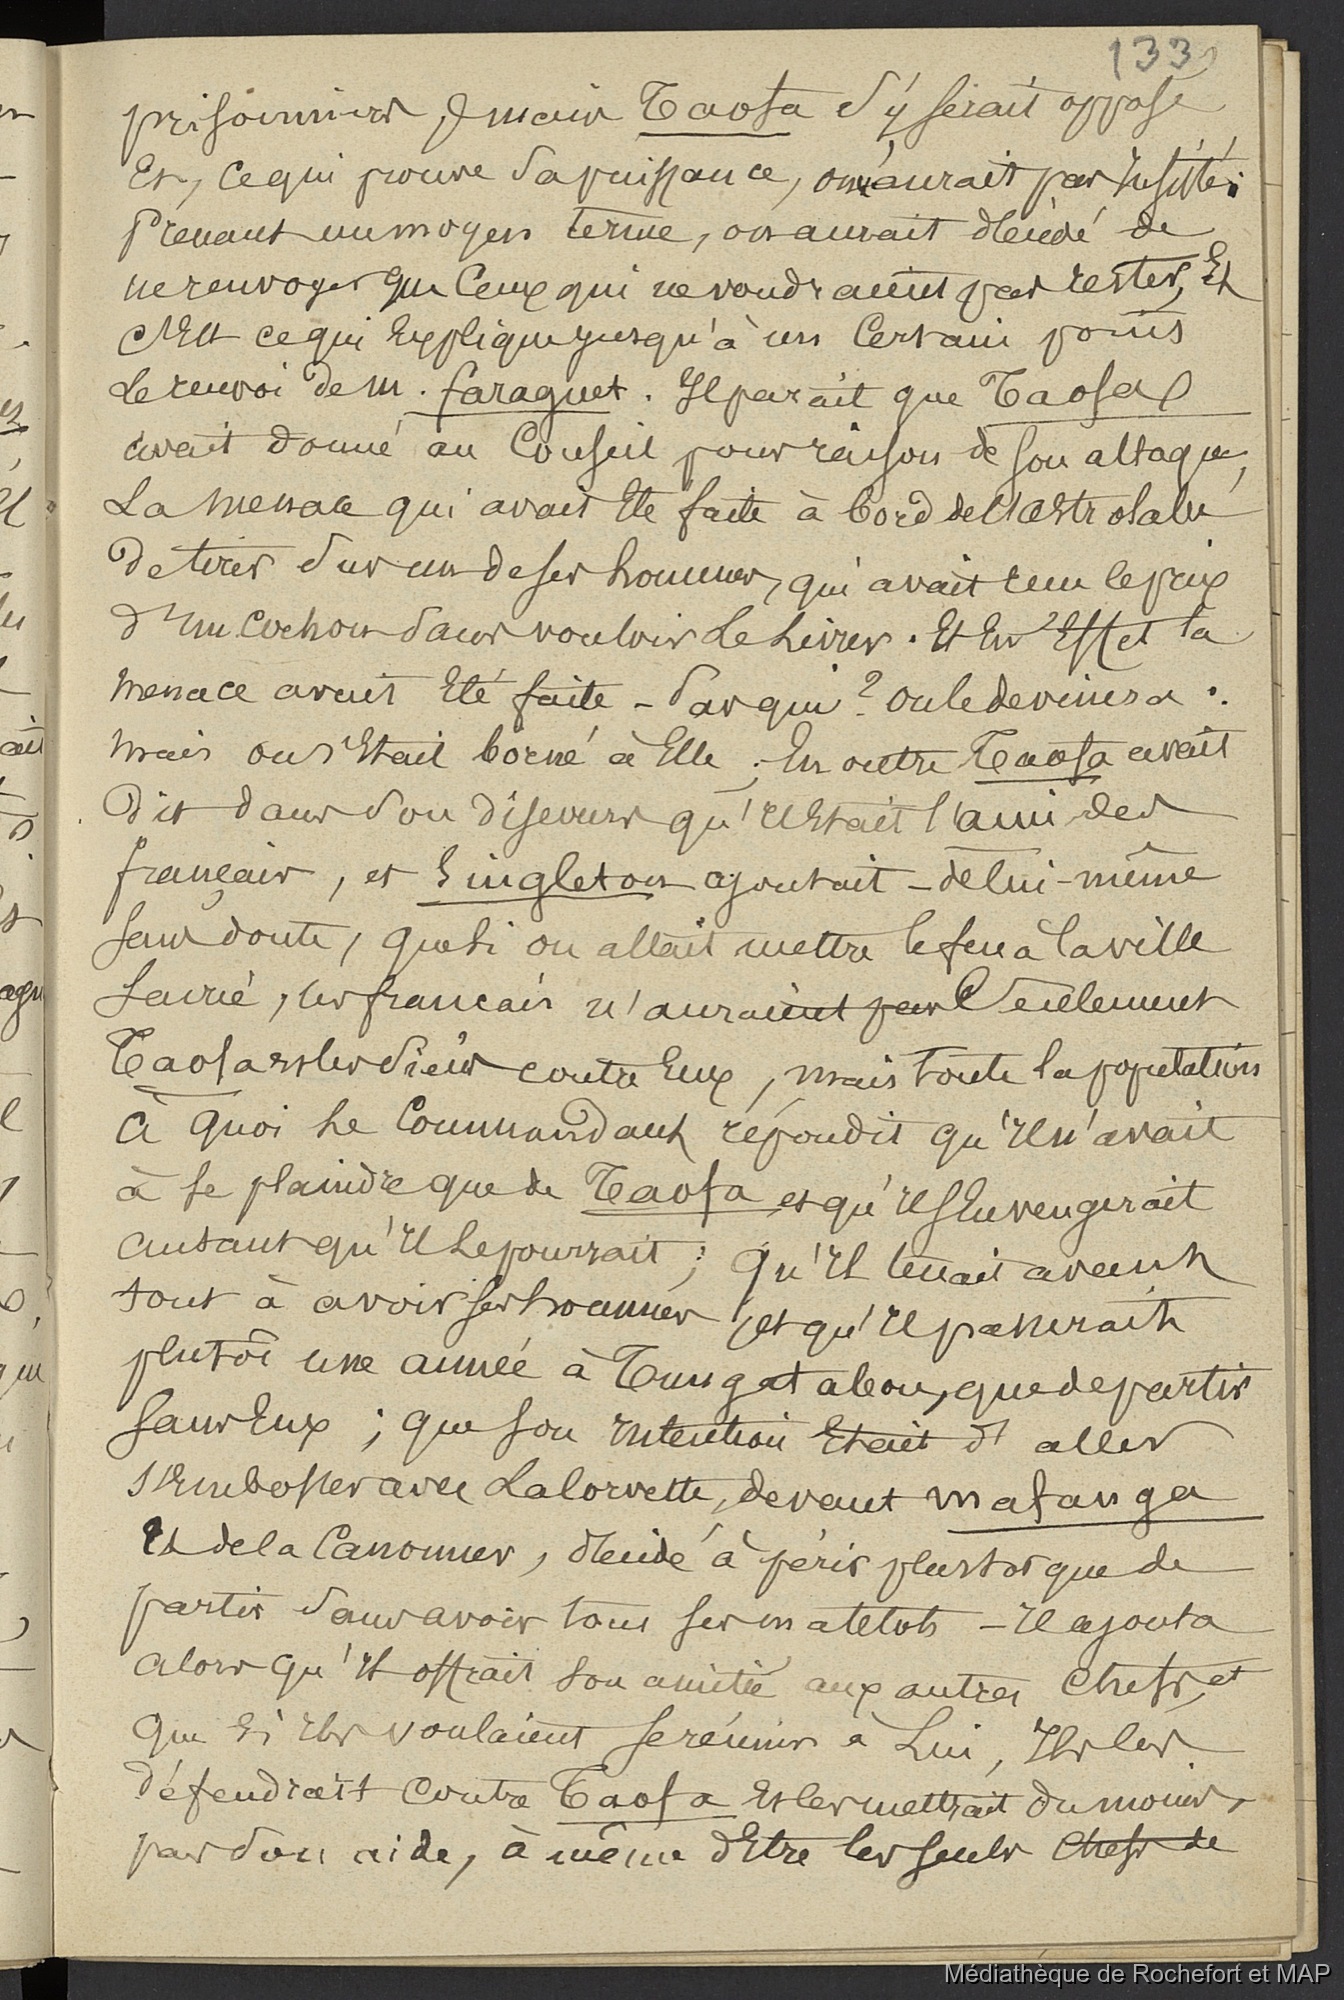 133
prisonniers, mais Taofa s'y serait opposé
Et, ce qui prouve sa puissance, on n'aurait pas insisté;
Prenant un moyen terme, on aurait décidé de
ne renvoyer que ceux qui ne voudraient pas rester, Et
c'Est ce qui Explique jusqu'à un Certain point
Le renvoi de M. faraguet. Il paraît que Taofa
avait donné au Conseil pour raison de son attaque,
La menace qui avait Eté faite à bord de l'astrolabe
De tirer sur un de ses hommes, qui avait reçu le prix
d'un Cochon sans vouloir Le Livrer. Et En Effet la
menace avait Eté faite - par qui? on le devinera.
mais on s'Etait borné à Elle; En outre Taofa avait
Dit dans son discours qu'il Etait l'ami des
français, et Singleton ajoutait - de lui-même
sans doute, que si on allait mettre le feu à la ville
sacrée, les français n'auraient pas Seulement
Taofa et les siens contre Eux, mais toute la population
à quoi Le Commandant répondit qu'il n'avait
à se plaindre que de Taofa et qu'il s'En vengerait
autant qu'il Le pourrait; qu'il tenait avant
tout à avoir ses hommes et qu'il passerait
plutôt une année à Tungatabou, que de partir
sans Eux; que son intention Etait d'aller
s'Embosser avec La Corvette, devant mafanga
Et de la Canonner, décidé à périr plustot que de
partir sans avoir tous ses matelots - Il ajouta
alors qu'il offrait son amitié aux autres Chefs, et
que si ils voulaient se réunir à Lui, Il les
défendrait contre Taofa et les mettrait du moins,
par son aide, à même d'Etre les seuls Chefs de
Médiathèque de Rochefort et MAP